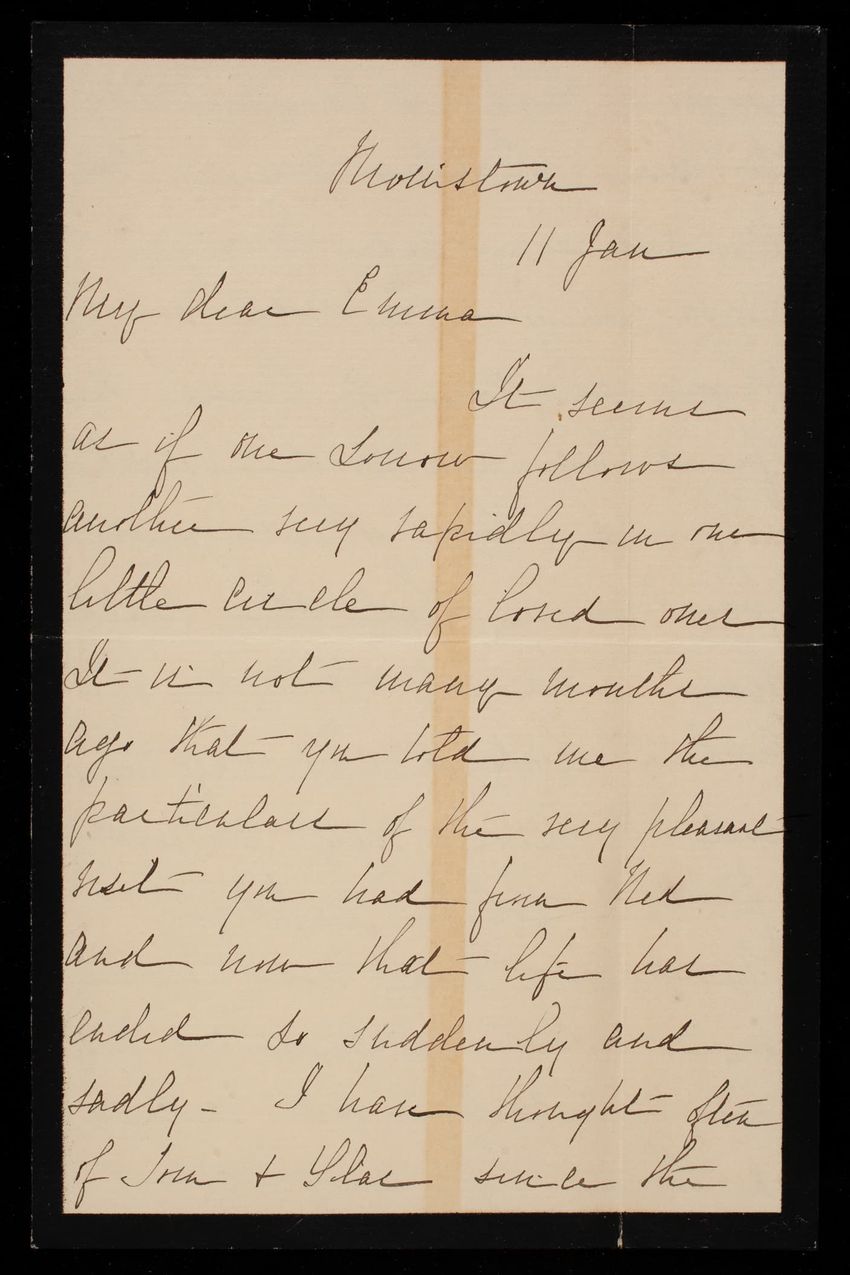 Morristown
11 Jan
My dear Emma
It seems
as if one sorrow follows
another very rapidly in our
little circle of loved ones
It is not many months
ago that you told me the
particulars of the very pleasant
visit you had from Ned
and now that life has
ended so suddenly and
sadly - I have thought often
of Tom & since the